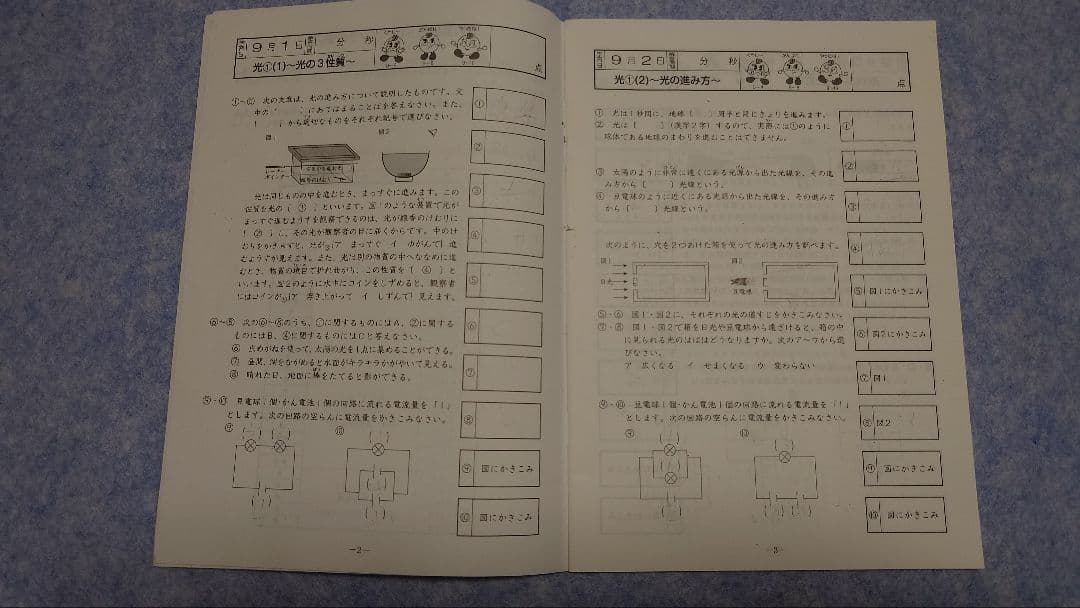 9月1日 分 秒
光①(1)〜光の3性質〜
点
①〜⑤ 次の文章は、光の進み方について説明したものです。文
中の( )にあてはまることばを答えなさい。また、
[ ]から適切なものをそれぞれ記号で選びなさい。
図1 図2
光は同じものの中を進むとき、まっすぐに進みます。この
性質を光の( ① )といいます。図1のような装置で光が
まっすぐ進むようすを観察できるのは、光が線香のけむりに
( ② )し、その光が観察者の目に届くからです。中のけ
むりをかき
まっすぐ イ ゆがんで〕進
むようすが見えます。また、光は別の物質の中へななめに進
むとき、物質の境目で折れ曲がり、この性質を( ④ )と
いいます。図2のように水中にコインをしずめると、観察者
にはコインが⑤〔ア 浮き上がって イ しずんで〕見えます。
⑥〜⑧ 次の⑥〜⑧のうち、①に関するものにはA、②に関す
るものにはB、④に関するものにはCと答えなさい。
⑥ 虫めがねを使って、太陽の光を1点に集めることができる。
⑦ 昼間、海をながめると水面がキラキラかがやいて見える。
⑧ 晴れた日、地面に棒をたてると影ができる。
⑨・⑩ 豆電球1個・かん電池1個の回路に流れる電流量を「1」
とします。次の回路の空らんに電流量をかきこみなさい。
⑨ ⑩
①
②
③
④
⑤
⑥
⑦
⑧
⑨ 図にかきこみ
⑩ 図にかきこみ
—2—
9月2日 分 秒
光①(2)〜光の進み方〜
点
① 光は1秒間に、地球( )周半と同じきょりを進みます。
② 光は( )(漢字2字)するので、実際には①のように
球体である地球のまわりを進むことはできません。
③ 太陽のように非常に遠くにある光源から出た光線を、その進
み方から( )光線という。
④ 豆電球のように近くにある光源から出た光線を、その進み方
から( )光線という。
次のように、穴を2つあけた箱を使って光の進み方を調べます。
図1 図2
日光 豆電球
⑤・⑥ 図1・図2に、それぞれの光の道すじをかきこみなさい。
⑦・⑧ 図1・図2で箱を日光や豆電球から遠ざけると、箱の中
に見られる光のはばはどうなりますか。次のア〜ウから選
びなさい。
ア 広くなる イ せまくなる ウ 変わらない
⑨・⑩ 豆電球1個・かん電池1個の回路に流れる電流量を「1」
とします。次の回路の空らんに電流量をかきこみなさい。
⑨ ⑩
①
②
③
④
⑤ 図1にかきこみ
⑥ 図2にかきこみ
⑦ 図1
⑧ 図2
⑨ 図にかきこみ
⑩ 図にかきこみ
—3—